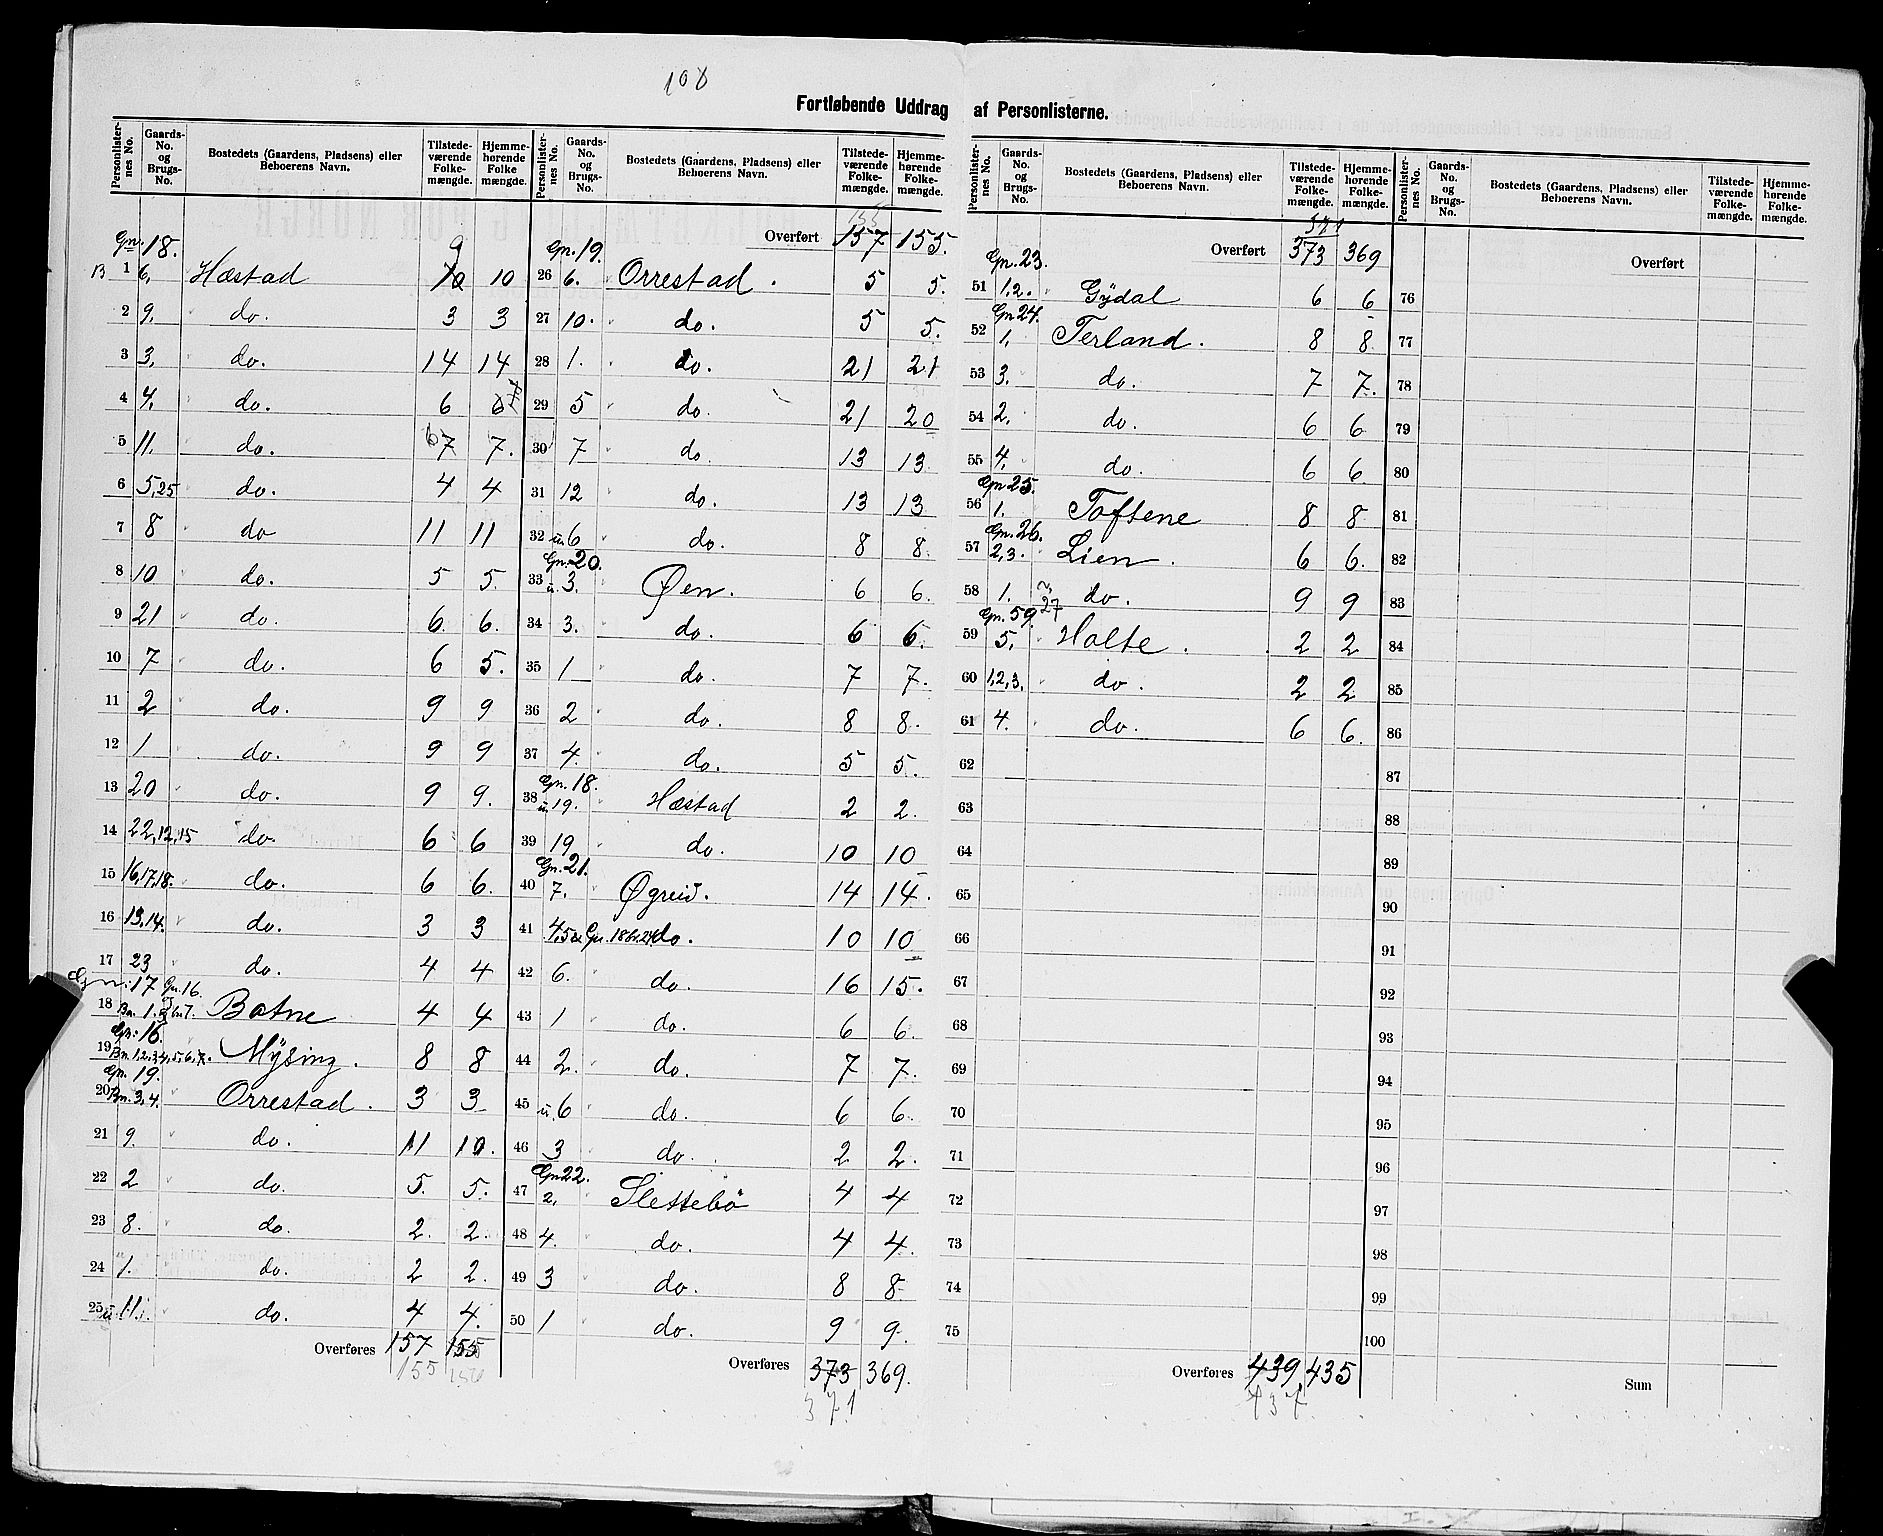 108
Fortløbende Uddrag af Personlisterne.
Personlisternes No. | Gaards-No. og Brugs-No. | Bostedets (Gaardens, Pladsens) eller Beboerens Navn. | Tilstedeværende Folkemængde. | Hjemmehørende Folkemængde.
Gn. 18. 9
13 1 6. Hæstad 10 10
2 9. " do. 3 3
3 3. " do. 14 14
4 4. " do. 6 6 7
5 11. " do. 6 7 7.
6 5,25 " do. 4 4
7 8 " do 11 11
8 10 " do. 5 5.
9 21 " do. 6. 6.
10 7 " do. 6 5.
11 2 " do. 9 9
12 1 " do. 9 9
13 20 " do. 9 9.
14 22,12,15 " do. 6 6
15 16,17,18. do. 6 6.
16 13,14. " do. 3 3
17 23 " do. 4 4
Gn: 17 Gn. 16.
18 Bn. 1. & bn 7. Botne 4 4
Gn: 16.
19 Bn. 1,2,3,4,5,6,7. Mÿsing. 8 8
Gn. 19.
20 Bn. 3,4. Orrestad. 3 3
21 9. " do. 11 10.
22 2 " do. 5. 5.
23 8. " do. 2. 2.
24 1. " do. 2 2.
25 u. 11. " do. 4 4.
Overføres 157 155
155 156
155
Gn. 19. Overført 157 155.
26 6. " Orrestad. 5 5.
27 10. " do. 5 5.
28 1. " do. 21 21
29 5 " do. 21 20
30 7 " do. 13 13.
31 12 " do. 13 13
32 u. 6 " do. 8 8.
Gn. 20.
33 u. 3. " Øen. 6 6.
34 3. " do. 6 6.
35 1 " do. 7 7.
36 2 " do. 8 8.
37 4. " do. 5 5.
Gn. 18.
38 u. 19. " Hæstad 2 2.
39 19 " do. 10 10
Gn. 21.
40 7. " Øgreid. 14 14.
41 4,5 & Gn. 18 bn. 24 do. 10 10
42 6. " do. 16 15.
43 1 " do. 6 6.
44 2. " do. 7 7.
45 u. 6 " do. 6 6.
46 3 " do. 2 2.
Gn 22.
47 2. " Slettebö 4 4
48 4. " do. 4 4.
49 3 " do. 8 8.
50 1 " do. 9 9.
Overføres 373 369.
371
371
Gn. 23. Overført 373 369
51 1,2. " Gÿdal 6 6
Gn 24.
52 1. Terland. 8 8
53 3. do. 7 7.
54 2. " do. 6 6
55 4. " do. 6 6
Gn 25.
56 1. " Toftene 8 8
Gn. 26.
57 2,3. " Lien. 6 6.
58 1. 27 do. 9 9
Gn. 59.
59 5. " Holte. 2 2
60 1,2,3. " do. 2 2
61 4. " do. 6 6.
62
63
64
65
66
67
68
69
70
71
72
73
74
75
Overføres 439 435
437
Overført
76
77
78
79
80
81
82
83
84
85
86
87
88
89
90
91
92
93
94
95
96
97
98
99
100
Sum